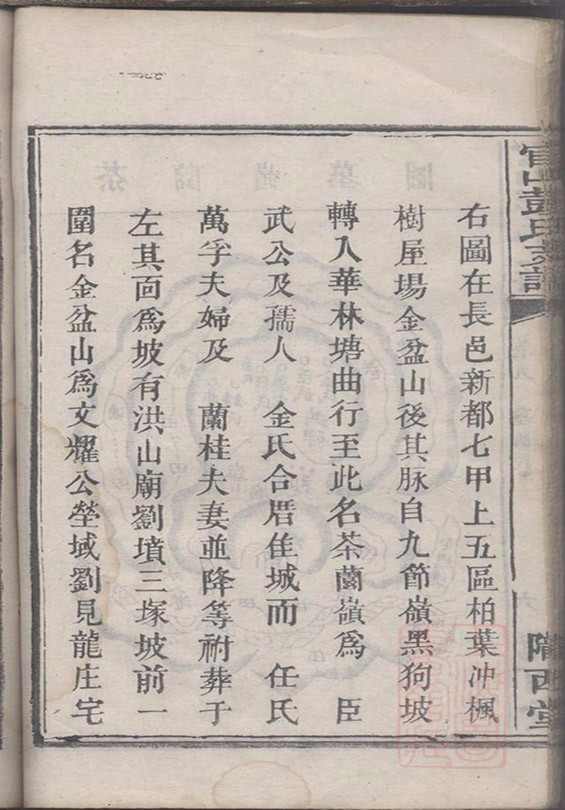 右圖在長邑新都七甲上五區柏葉冲楓
樹屋塲金盆山後其脉自九節嶺黑狗坡
轉入華林塘曲行至此名茶蘭嶺爲 臣
武公及孺人 金氏合厝佳城而 任氏
萬孚夫婦及 蘭桂夫妻並降等祔葬于
左其面爲坡有洪山廟劉墳三塚坡前一
圍名金盆山爲文耀公塋域劉見龍庄宅